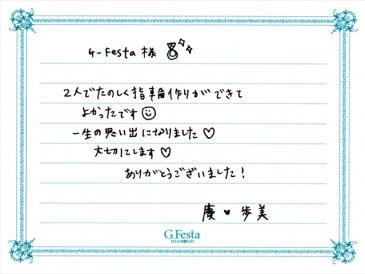 G-Festa 様
2人でたのしく指輪作りができて
よかったです
一生の思い出になりました♡
大切にします♡
ありがとうございました!
慶 ♥ 歩美
G.Festa
DIAMOND